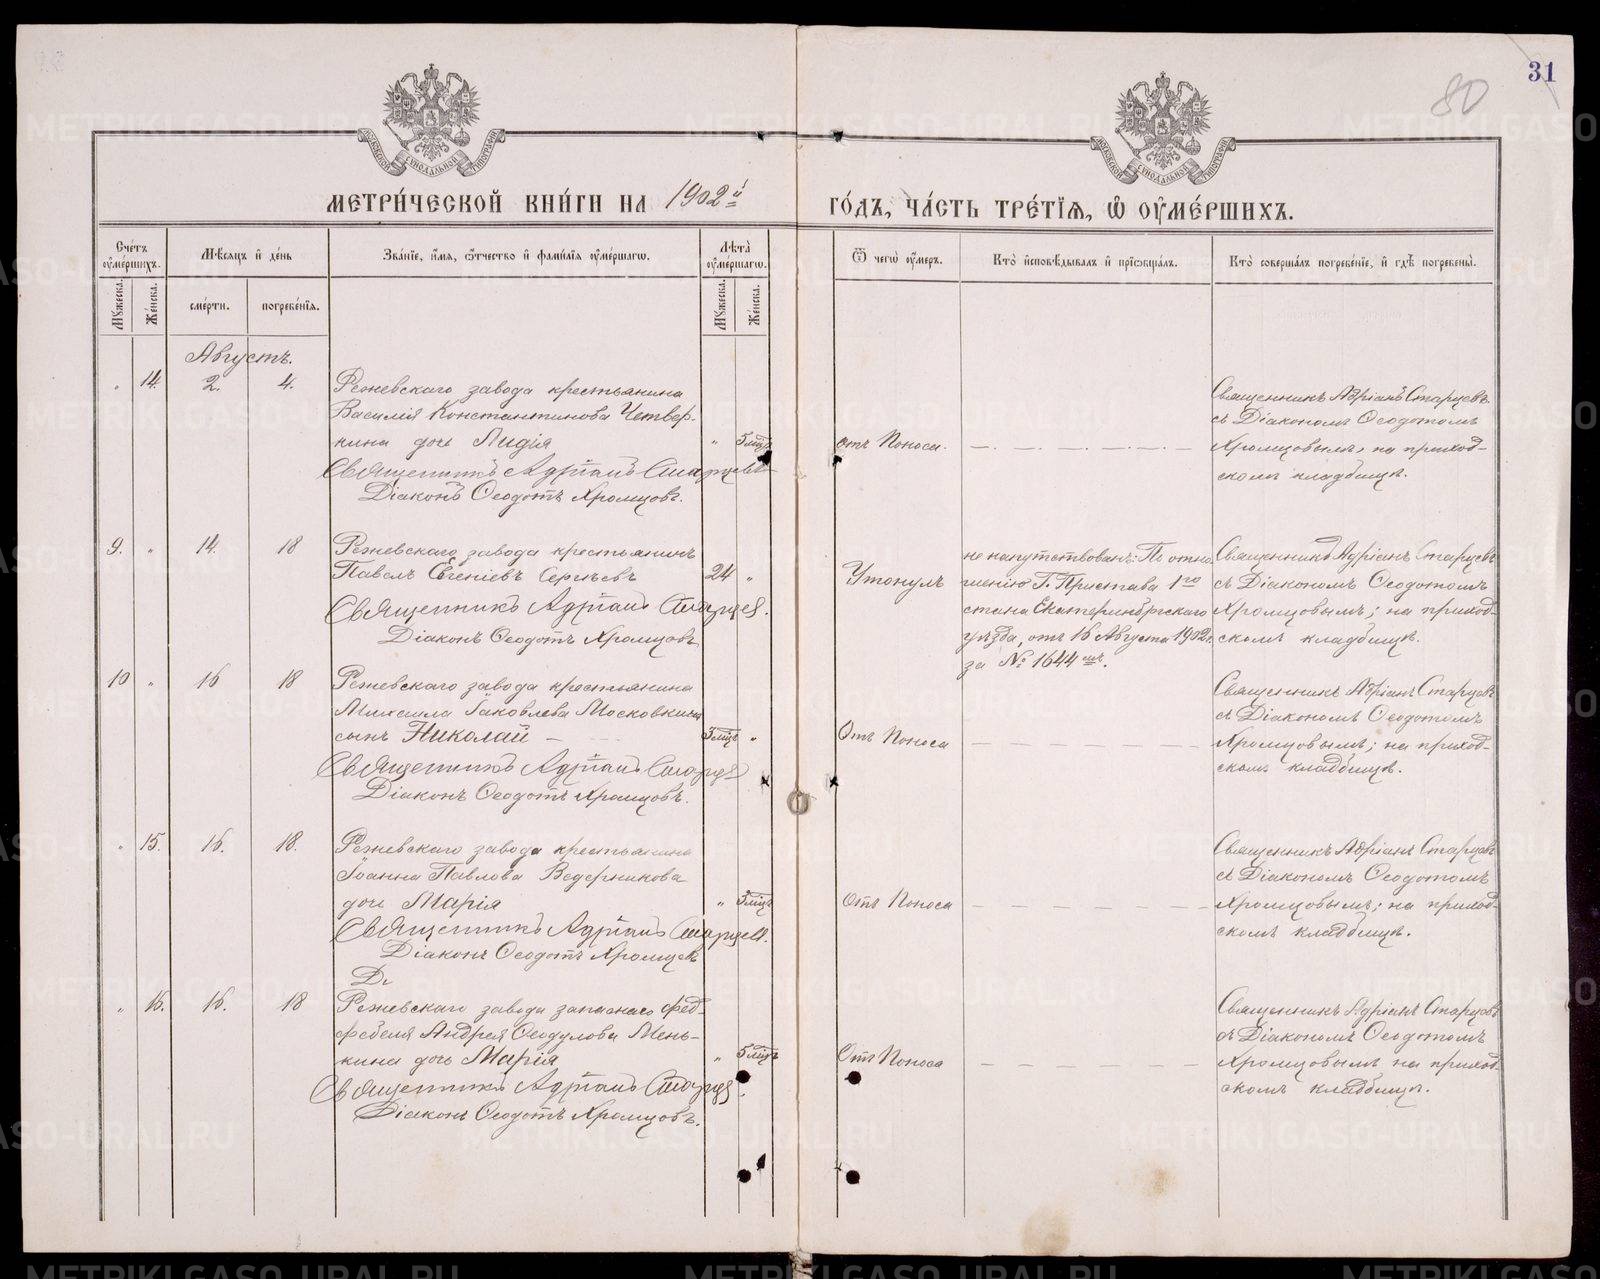 31
80
МЕТРИ́ЧЕСКОЙ КНИ́ГИ НА 1902й
ГО́ДЪ, ЧА́СТЬ ТРЕ́ТІѦ, Ѡ҆ ОУ҆МЕ́РШИХЪ.
Сче́тъ оу҆ме́ршихъ.
Мѣ́сяцъ и҆ де́нь
Зва́ніе, и҆́мя, ѻ҆́тчество и҆ фами́лія оу҆ме́ршагѡ.
Лѣ́та оу҆ме́ршагѡ.
Ѿ чегѡ̀ оу҆́меръ.
Кто̀ и҆сповѣ́дывалъ и҆ пріѡбща́лъ.
Кто̀ соверша́лъ погребе́ніе, и҆ гдѣ̀ погребены̀.
Мꙋ́жеска.
Же́нска.
сме́рти.
погребе́нія.
Мꙋ́жеска.
Же́нска.
Августъ.
" 14. 2. 4.
Режевскаго завода крестьянина
Василія Константинова Четвер-
кина дочь Лидія " 5 мцъ
Священникъ Адріанъ Старцевъ
Діаконъ Ѳеодотъ Хромцовъ.
отъ Поноса.
Священникъ Адріанъ Старцевъ
съ Діакономъ Ѳеодотомъ
Хромцовымъ, на приход-
скомъ кладбищѣ.
9. " 14. 18
Режевскаго завода крестьянинъ
Павелъ Евгеніевъ Сергѣевъ 24 "
Священникъ Адріанъ Старцев.
Діаконъ Ѳеодотъ Хромцовъ
Утонулъ
не напутствованъ: По отно-
шенію Г. Пристава 1го
стана Екатеринбргскаго
уѣзда, отъ 16 Августа 1902г.
за № 1644мъ.
Священникъ Адріанъ Старцевъ
съ Діакономъ Ѳеодотомъ
Хромцовымъ; на приход-
скомъ кладбищѣ.
10 " 16 18
Режевскаго завода крестьянина
Михаила Іаковлева Московкина
сынъ Николай 3 мцъ "
Священникъ Адріанъ Старцев
Діаконъ Ѳеодотъ Хромцовъ.
Отъ Поноса
Священникъ Адріанъ Старцевъ
съ Діакономъ Ѳеодотомъ
Хромцовымъ; на приход-
скомъ кладбищѣ.
" 15. 16. 18.
Режевскаго завода крестьянина
Іоанна Павлова Ведерникова
дочь Марія " 3 мцъ
Священникъ Адріанъ Старцев.
Діаконъ Ѳеодотъ Хромцовъ
Отъ Поноса
Священникъ Адріанъ Старцевъ
съ Діакономъ Ѳеодотомъ
Хромцовымъ; на приход-
скомъ кладбищѣ.
Ди
" 16. 16. 18
Режевскаго завода запаснаго фед-
фебеля Андрея Ѳеодулова Мень-
кина дочь Марія " 5 мцъ
Священникъ Адріанъ Старцев.
Діаконъ Ѳеодотъ Хромцовъ.
Отъ Поноса
Священникъ Адріанъ Старцовъ
съ Діакономъ Ѳеодотомъ
Хромцовымъ на приход-
скомъ кладбищѣ.
METRIKI.GASO-URAL.RU